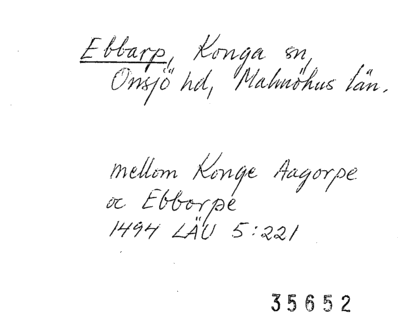 Ebbarp, Konga sn,
Onsjö hd, Malmöhus län.
mellom Konge Aagorpe
oc Ebborpe
1494 LÄU 5:221
35652